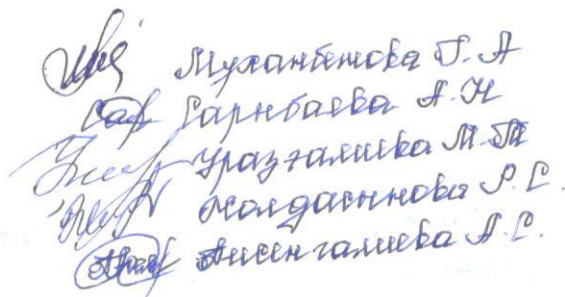 Муханбетова Г. А
Сарибаева А. Н
Уразгалиева М. Т
Жолдаскинова Р. С.
Аисенгалиева А. С.